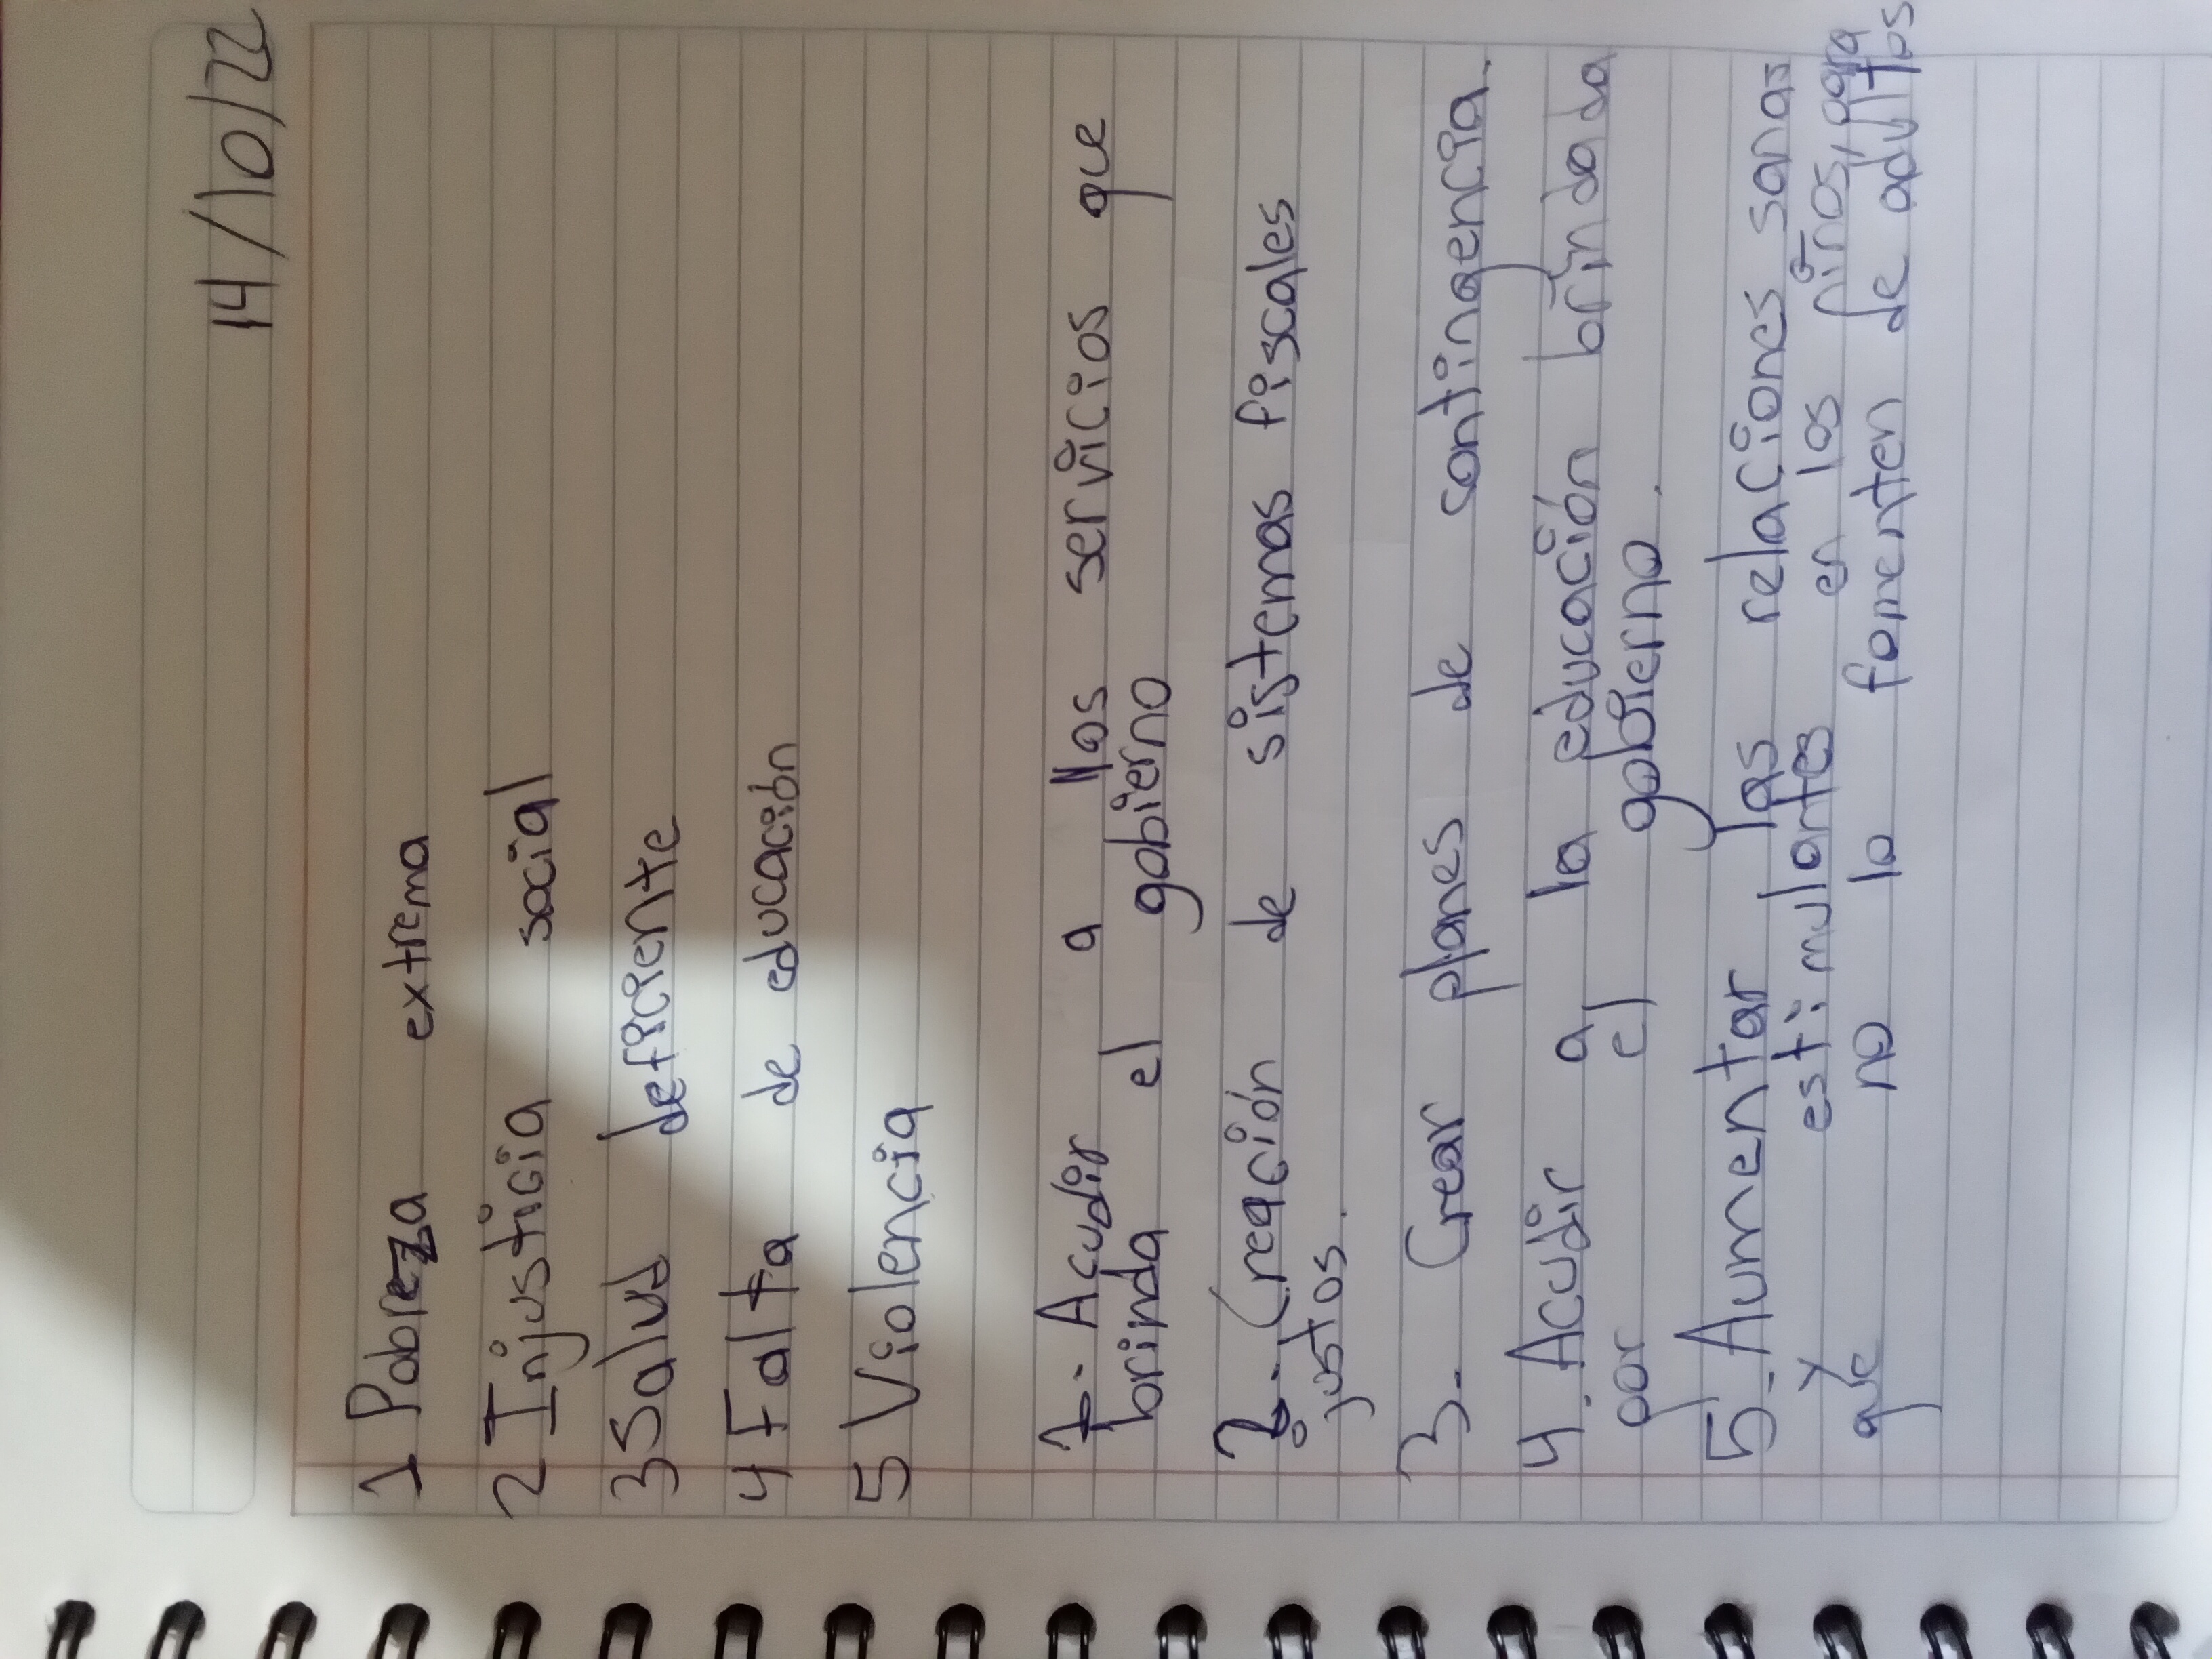 14/10/22
1 Pobreza extrema
2 Injusticia social
3 Salud deficiente
4 Falta de educación
5 Violencia
1.- Acudir a los servicios que
brinda el gobierno
2.- Creación de sistemas fiscales
justos.
3.- Crear planes de contingencia.
4. Acudir a la educación brindada
por el gobierno.
5.- Aumentar las relaciones sanas
y estimulantes en los niños, para
que no lo fomenten de adultos